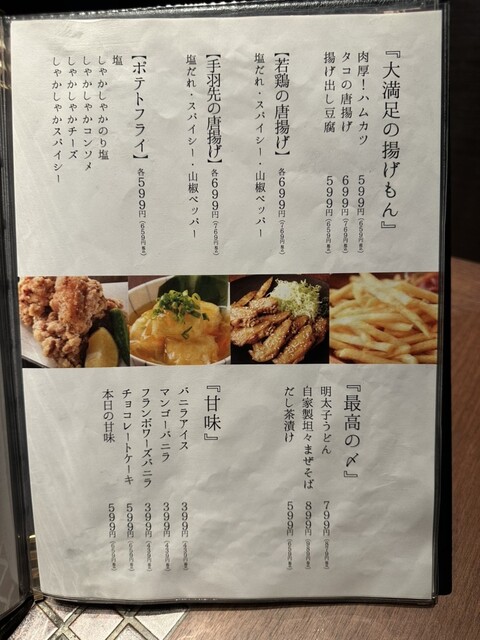 『大満足の揚げもん』
肉厚！ハムカツ 599円（659円税込）
タコの唐揚げ 699円（769円税込）
揚げ出し豆腐 599円（659円税込）
【若鶏の唐揚げ】 各699円（769円税込）
塩だれ・スパイシー・山椒ペッパー
【手羽先の唐揚げ】 各699円（769円税込）
塩だれ・スパイシー・山椒ペッパー
【ポテトフライ】 各599円（659円税込）
塩
しゃかしゃかのり塩
しゃかしゃかコンソメ
しゃかしゃかチーズ
しゃかしゃかスパイシー
『最高の〆』
明太子うどん 799円
自家製坦々まぜそば 899円
だし茶漬け 599円
『甘味』
バニラアイス 399円
マンゴーバニラ 399円
フランボワーズバニラ 399円
チョコレートケーキ 599円
本日の甘味 599円